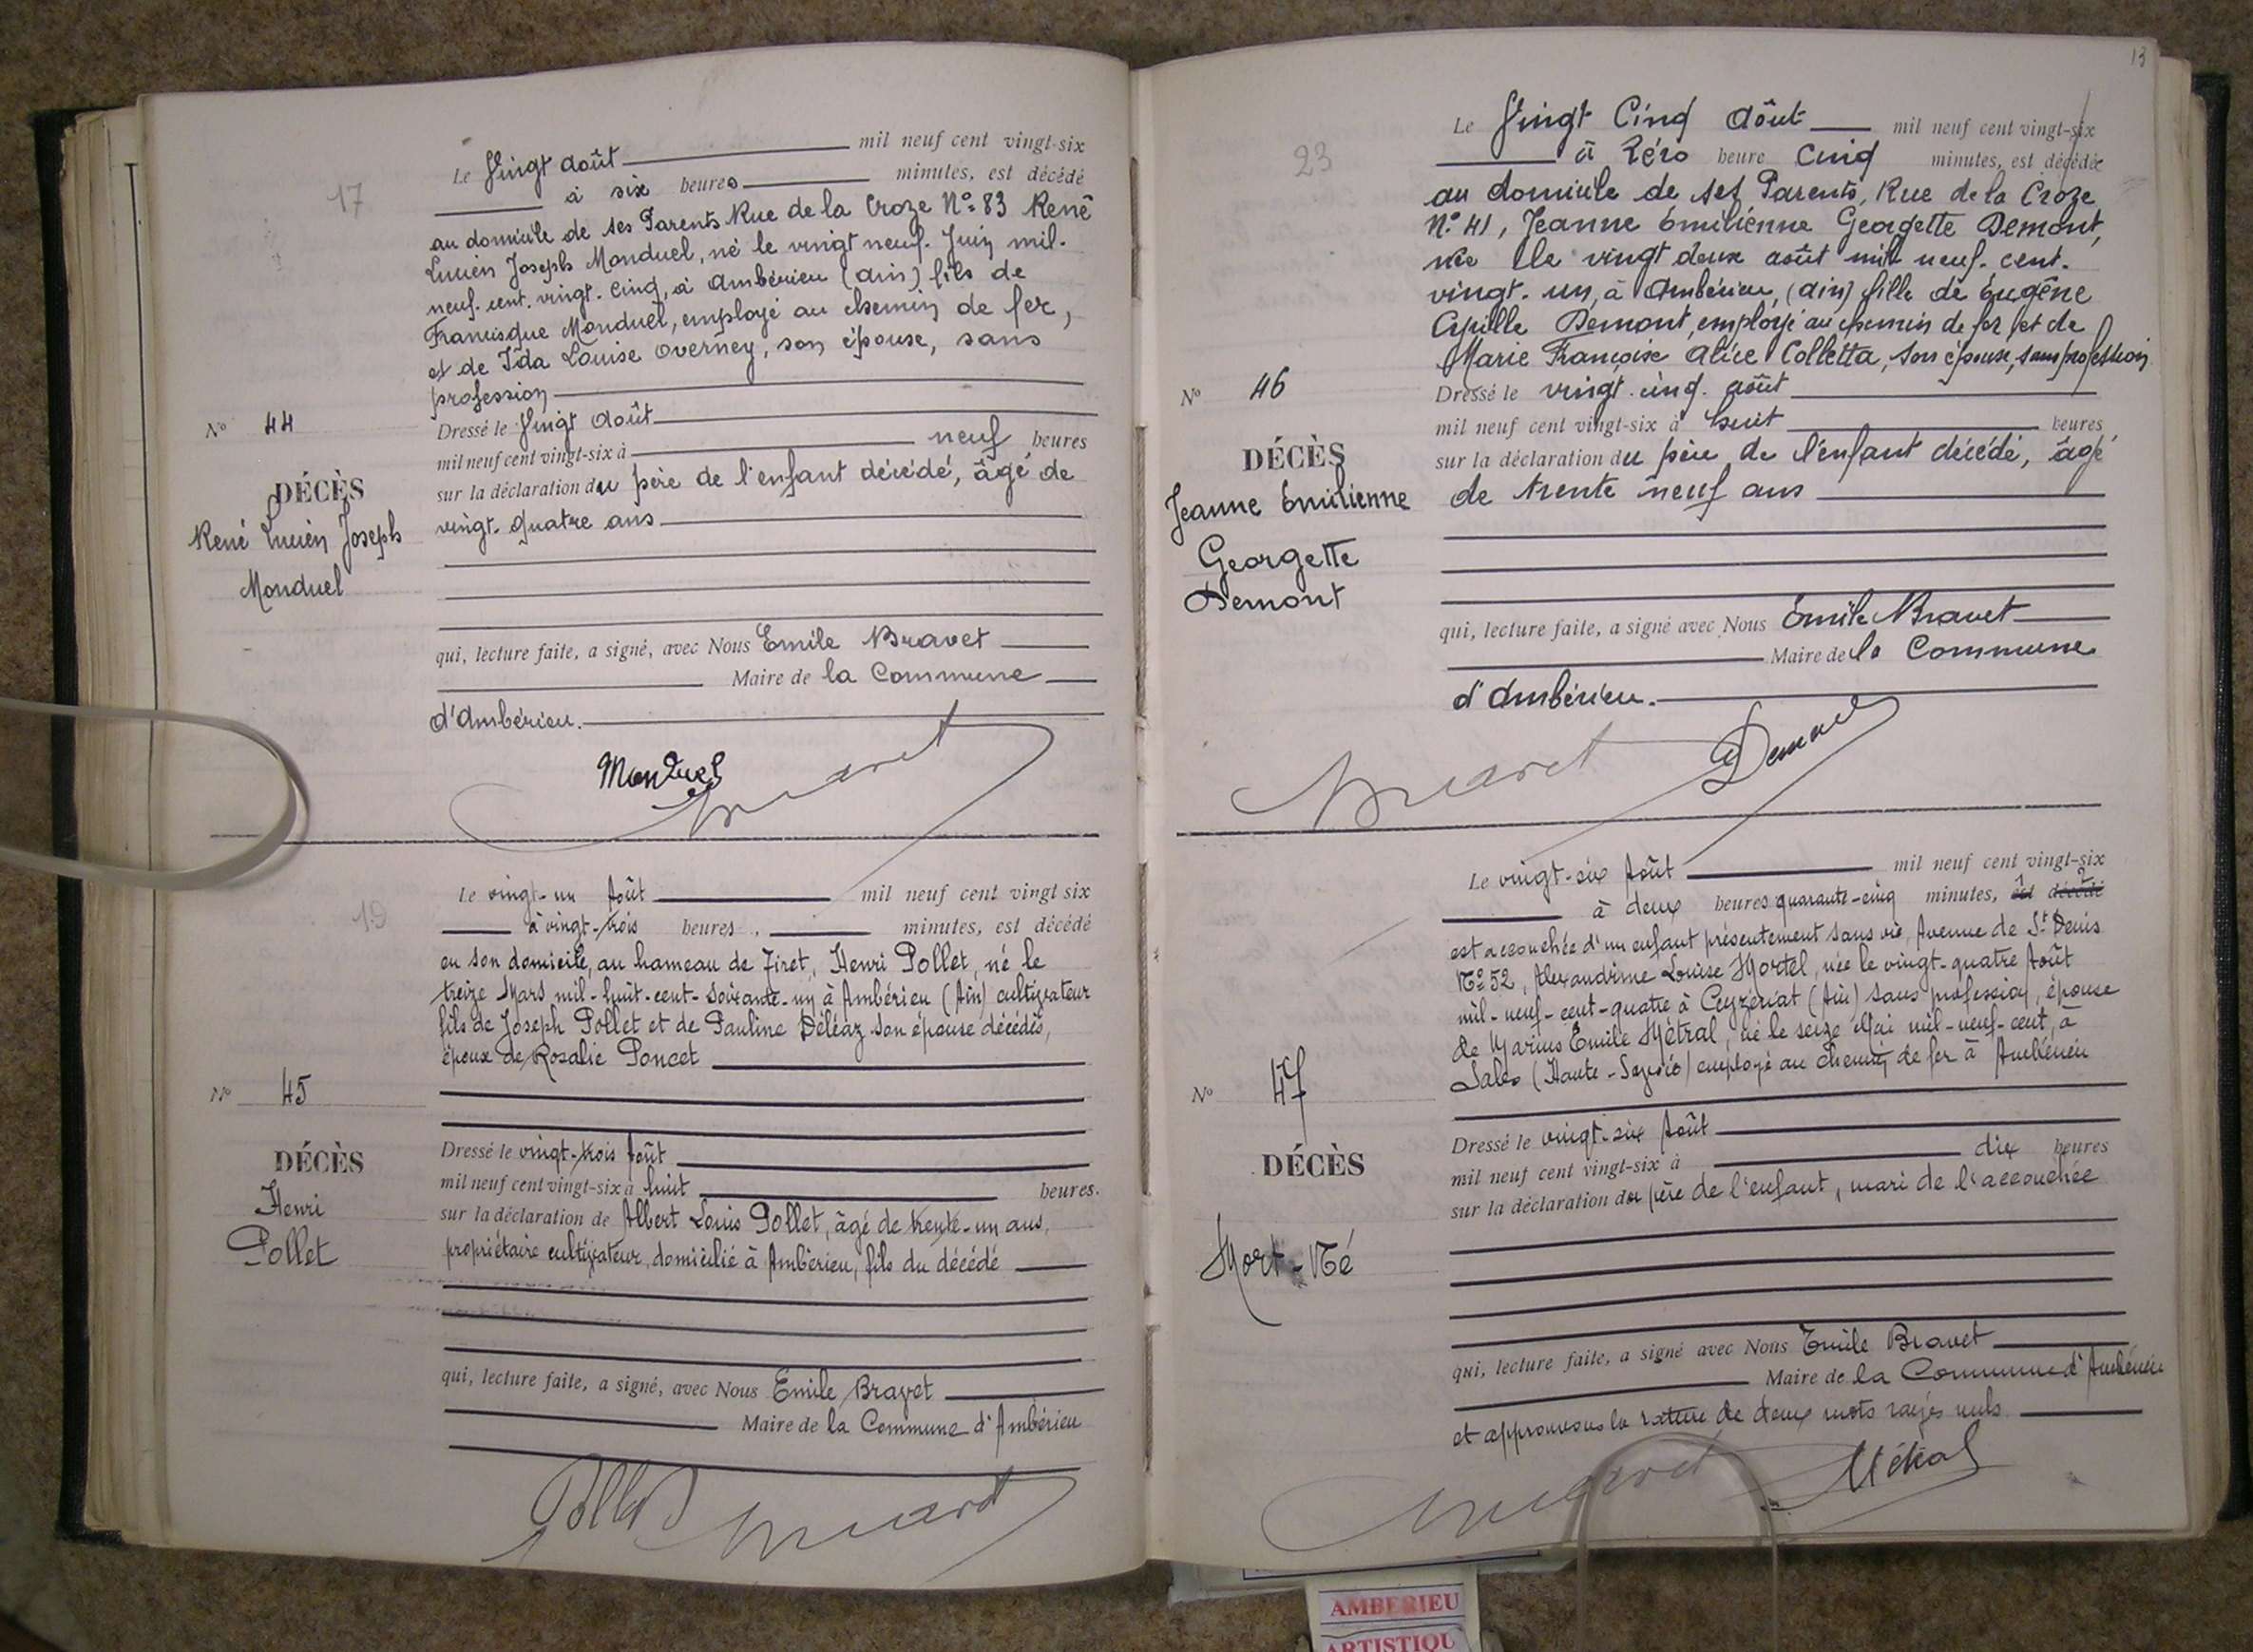 17
Le Vingt août mil neuf cent vingt-six
à six heures minutes, est décédé
au domicile de ses Parents Rue de la Croze N°= 83 René
Lucien Joseph Monduel, né le vingt neuf. Juin mil.
neuf. cent. vingt. cinq, à Ambérieu (ain) fils de
Francisque Monduel, employé au chemin de fer,
et de Ida Louise Overney, son épouse, sans
profession
N° 44
Dressé le Vingt août
mil neuf cent vingt-six à neuf heures
DÉCÈS
sur la déclaration du père de l'enfant décédé, âgé de
René Lucien Joseph
vingt. quatre ans
Monduel
qui, lecture faite, a signé, avec Nous Emile Bravet
Maire de la Commune
d'Ambérieu.
Monduel
Bravet
19
Le vingt-un Août mil neuf cent vingt six
à vingt-trois heures, minutes, est décédé
en son domicile, au hameau de Tiret, Henri Pollet, né le
treize Mars mil-huit-cent-soixante-un à Ambérieu (Ain) cultivateur
fils de Joseph Pollet et de Pauline Déléaz son épouse décédés,
époux de Rosalie Poncet
N° 45
Dressé le vingt-trois Août
DÉCÈS
mil neuf cent vingt-six à huit heures.
Henri
sur la déclaration de Albert Louis Pollet, âgé de trente-un ans,
Pollet
propriétaire cultivateur, domicilié à Ambérieu, fils du décédé
qui, lecture faite, a signé, avec Nous Emile Bravet
Maire de la Commune d'Ambérieu
Pollet Bravet
13
23
Le Vingt Cinq Août mil neuf cent vingt-six
à Zéro heure Cinq minutes, est décédée
au domicile de ses Parents, Rue de la Croze
N° 41, Jeanne Emilienne Georgette Demont,
née le vingt deux août mil neuf. cent.
vingt. un, à Ambérieu, (ain) fille de Eugène
Demont, employé au chemin de fer et de
Marie Françoise Alice Colletta, son épouse, sans profession
N° 46
Dressé le vingt. cinq. août
mil neuf cent vingt-six à huit heures
DÉCÈS
sur la déclaration du père de l'enfant décédé, âgé
Jeanne Emilienne
de trente neuf ans
Georgette
Demont
qui, lecture faite, a signé avec Nous Emile Bravet
Maire de la Commune
d'Ambérieu.
Bravet Demont
Le vingt-six Août mil neuf cent vingt-six
à deux heures quarante-cinq minutes, est décédé
est accouchée d'un enfant présentement sans vie, Avenue de St Denis
N° 52, Alexandrine Louise Mortel, née le vingt-quatre Août
mil-neuf-cent-quatre à Ceyzériat (Ain) sans profession, épouse
de Marius Emile Métral, né le seize Mai mil-neuf-cent, à
Sales (Haute-Savoie) employé au chemin de fer à Ambérieu
N° 47
Dressé le vingt-six Août
DÉCÈS
mil neuf cent vingt-six à dix heures
sur la déclaration du père de l'enfant, mari de l'accouchée
Mort-Né
qui, lecture faite, a signé avec Nous Emile Bravet
Maire de la Commune d'Ambérieu
et approuvons la rature de deux mots rayés nuls.
Bravet Métral
AMBERIEU
ARTISTIQU